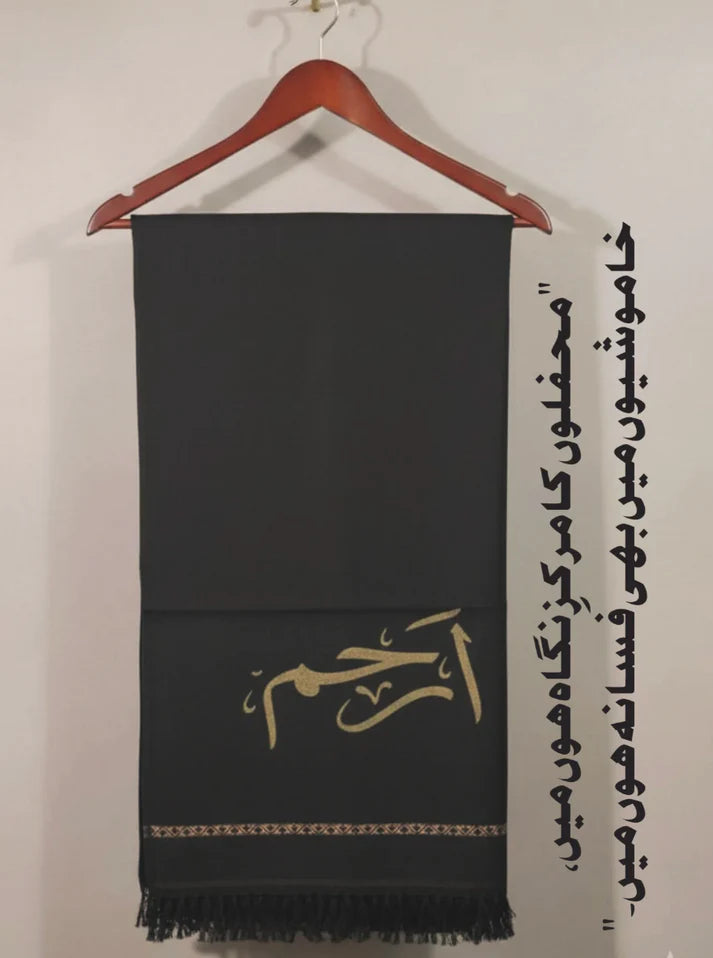 اَرحم
"محفلوں کا مرکزِ نگاہ ہوں میں،
خاموشیوں میں بھی فسانہ ہوں میں۔"